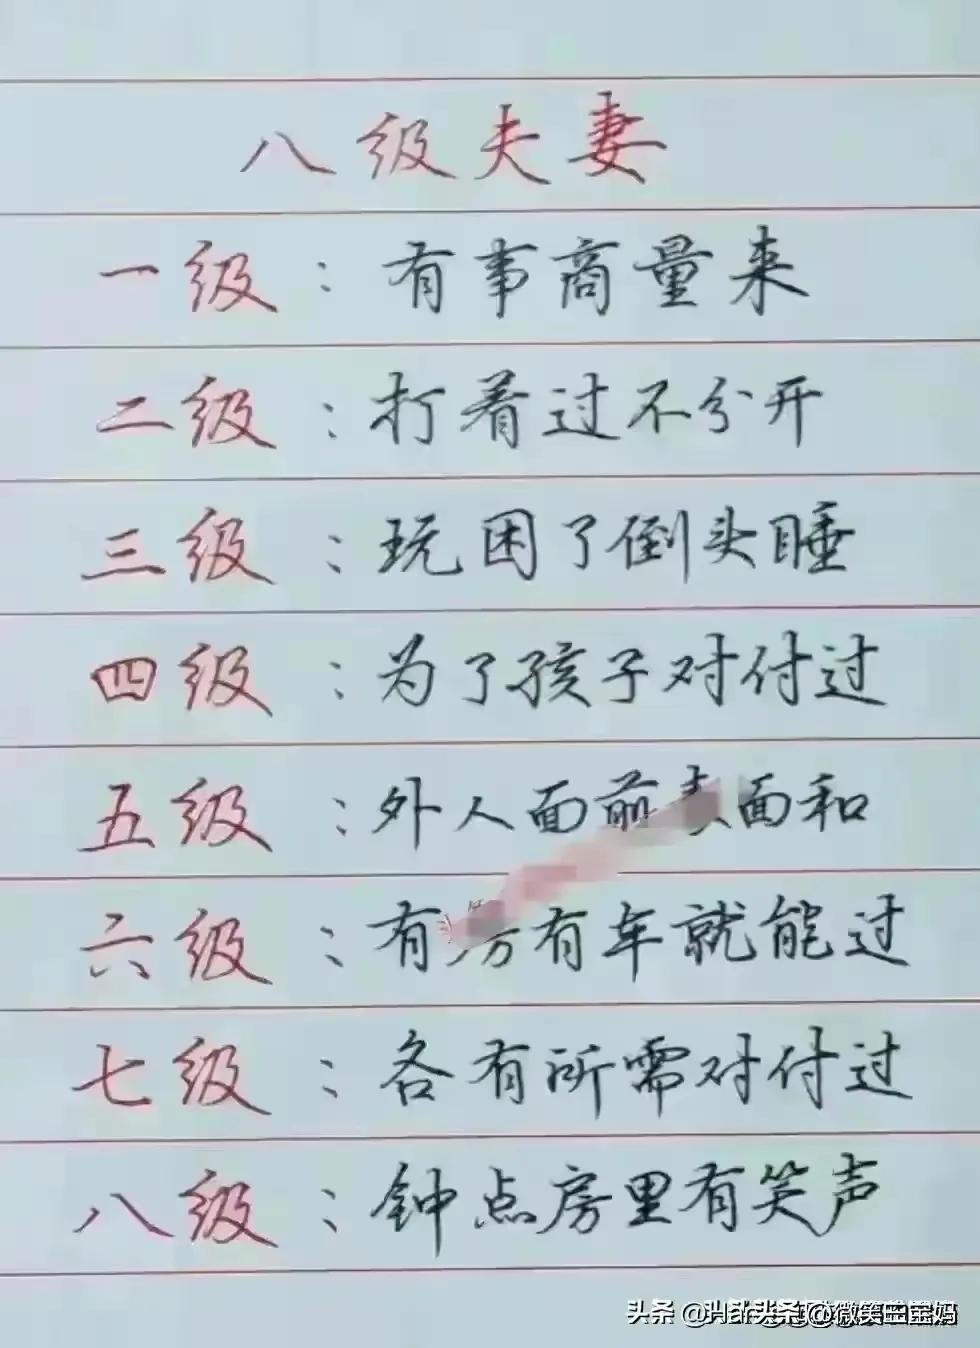 八级夫妻
一级：有事商量来
二级：打着过不分开
三级：玩困了倒头睡
四级：为了孩子对付过
五级：外人面前表面和
六级：有房有车就能过
七级：各有所需对付过
八级：钟点房里有笑声
头条 @头条 @微笑